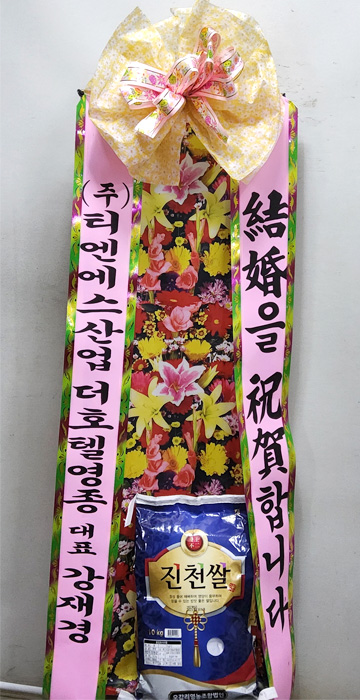 (주)티엔에스산업 더호텔영종 대표 강재경
結婚을 祝賀합니다
진천쌀
10kg